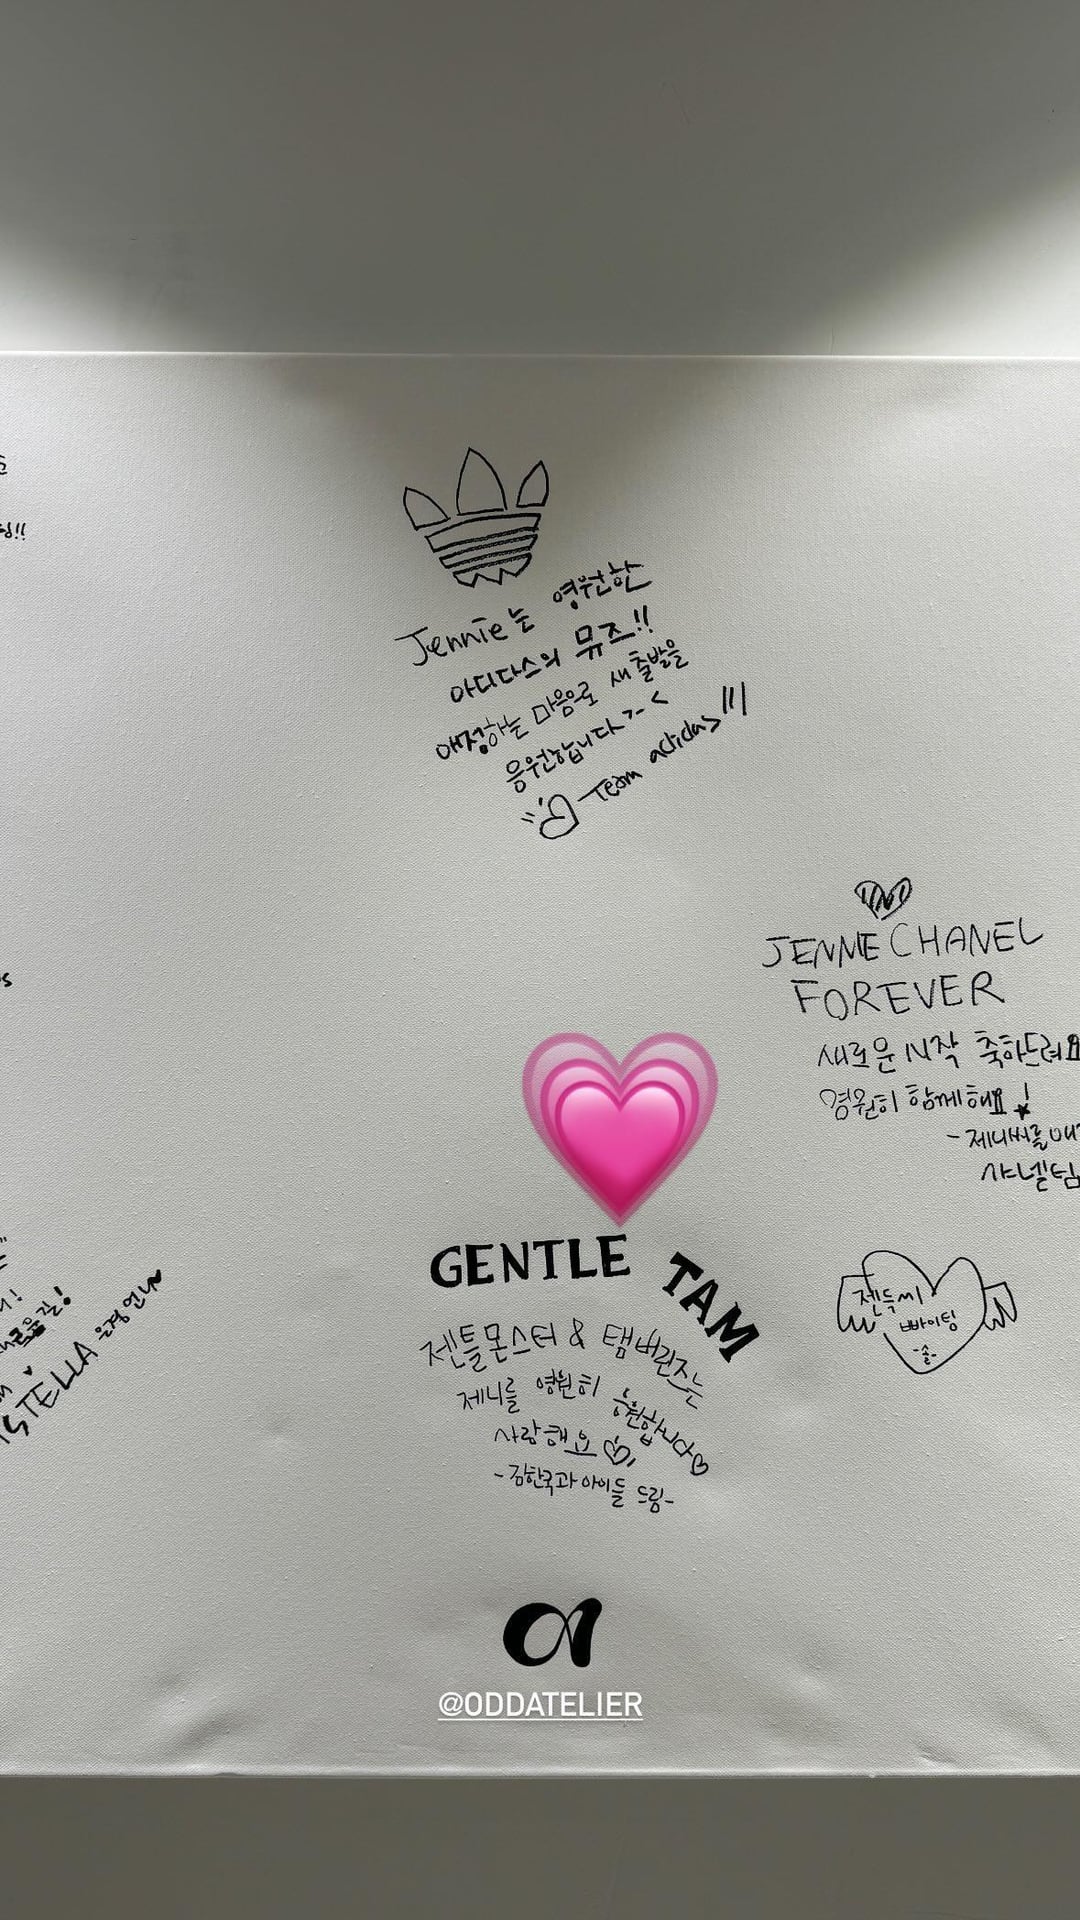 팅!!
Jennie는 영원한
아디다스의 뮤즈!!
애정하는 마음으로 새 출발을
응원합니다 >-<
Team adidas
JENNIE CHANEL
FOREVER
새로운 시작 축하드려요
영원히 함께해요!
- 제니씨를
샤넬팀
GENTLE TAM
젠틀몬스터 & 탬버린즈는
제니를 영원히 응원합니다
사랑해요
- 김한국과 아이들 드림 -
젠득씨
빠이팅
-솔-
STELLA 은경언니
@ODDATELIER